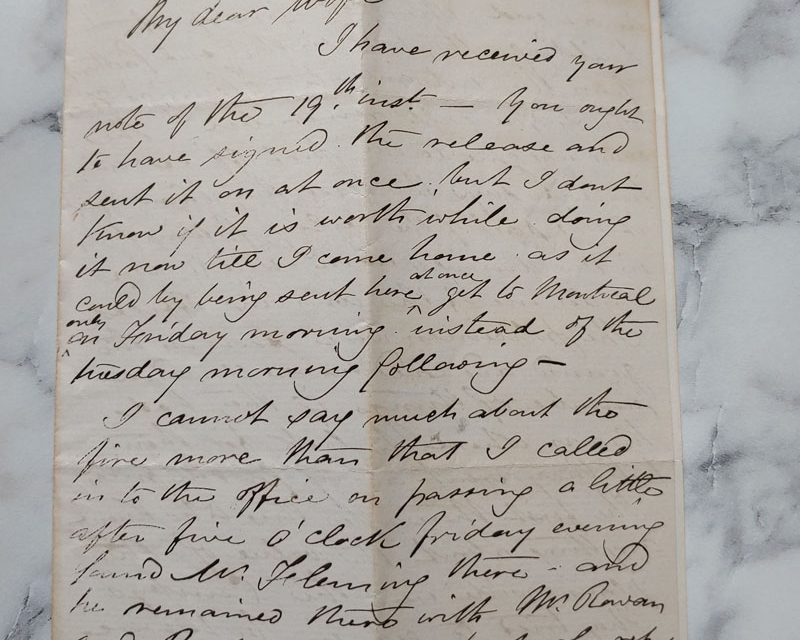 My dear Wife
I have received your
note of the 19th inst. — You ought
to have signed the release and
sent it on at once but I dont
know if it is worth while doing
it now till I come home as it
could by being sent here at once get to Montreal
only on Friday morning instead of the
tuesday morning following —
I cannot say much about the
fire more than that I called
in to the office on passing a little
after five O'clock friday evening
found Mr. Fleming there - and
he remained there with Mr. Rowan
and